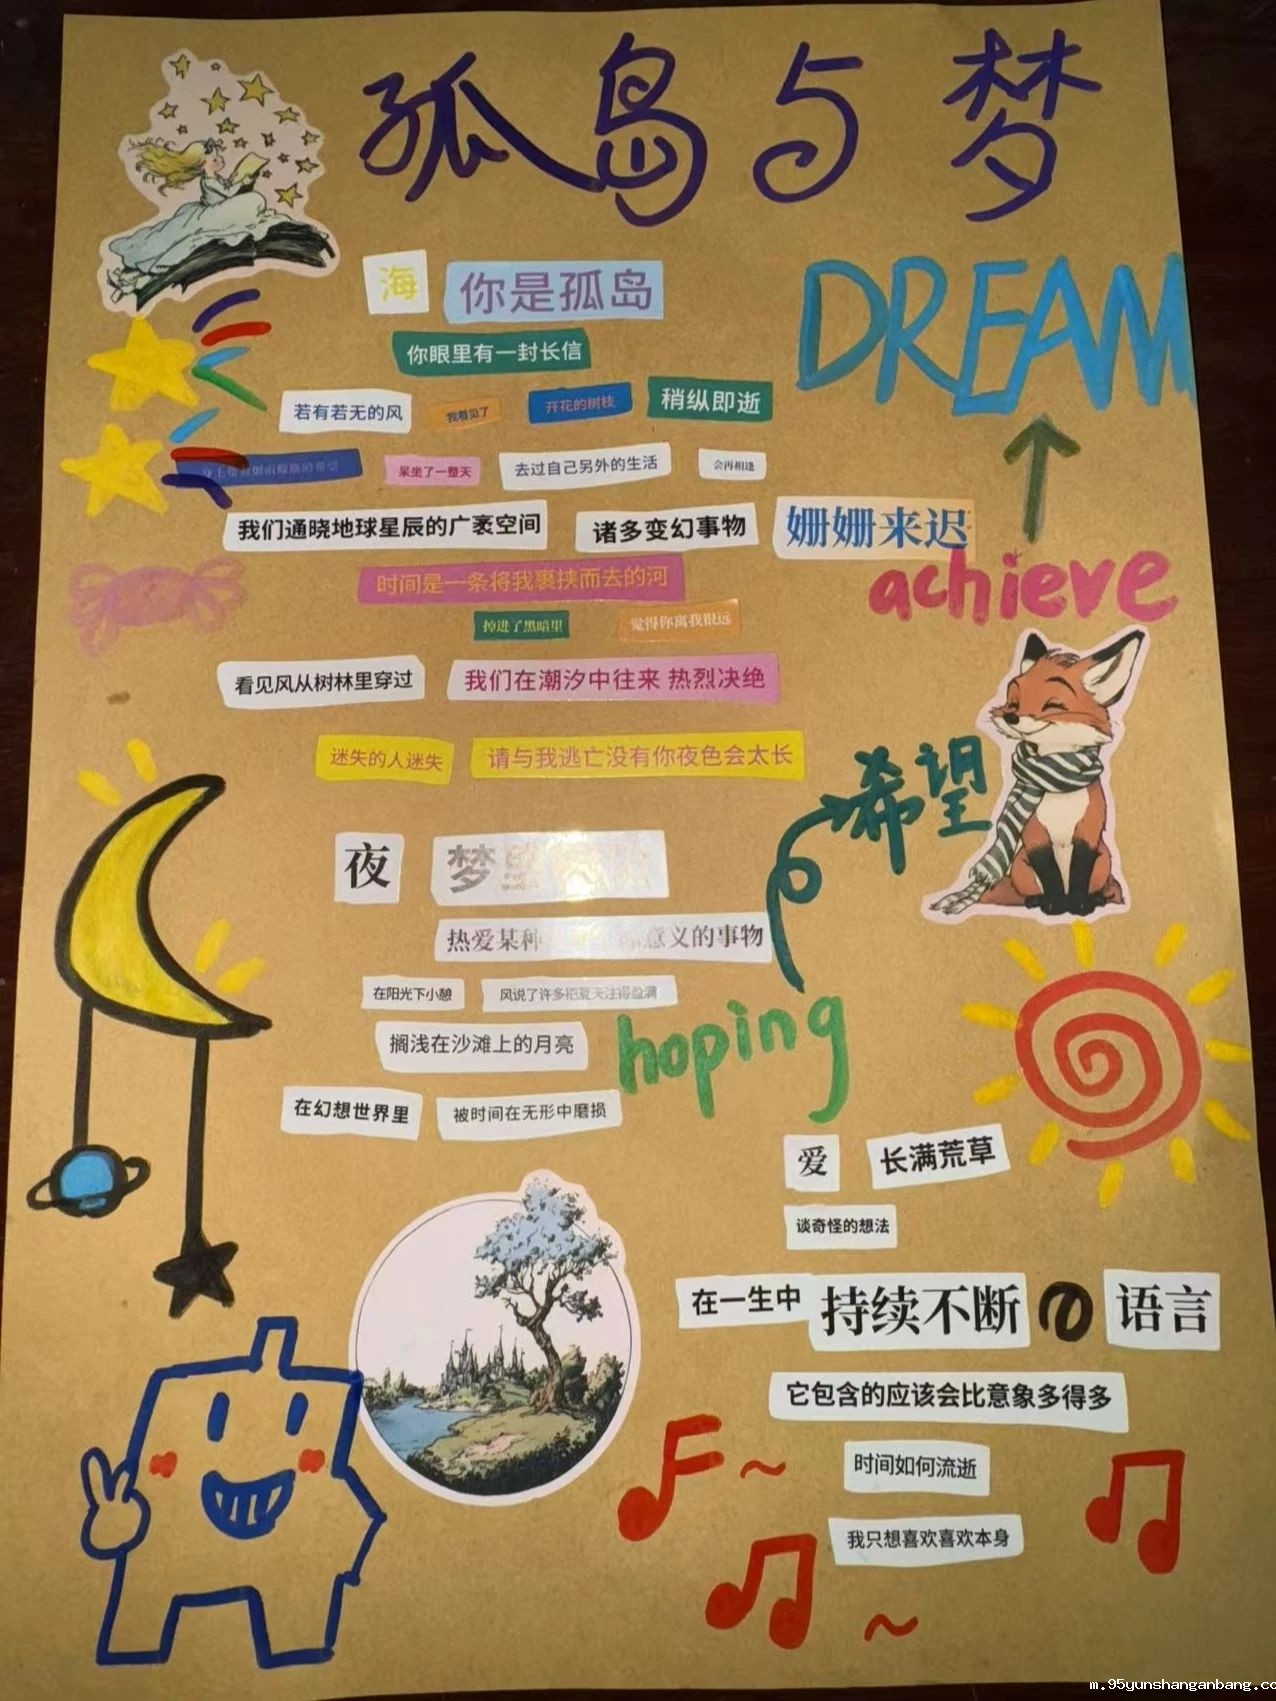 孤岛与梦
DREAM
海 你是孤岛
你眼里有一封长信
若有若无的风 我看见了 开花的树枝 稍纵即逝
呆坐了一整天 去过自己另外的生活 会再相逢
我们通晓地球星辰的广袤空间 诸多变幻事物 姗姗来迟
achieve
时间是一条将我裹挟而去的河
掉进了黑暗里 觉得你离我很远
看见风从树林里穿过 我们在潮汐中往来 热烈决绝
迷失的人迷失 请与我逃亡没有你夜色会太长
希望
夜 梦
热爱某种 意义的事物
在阳光下小憩 风说了许多把夏天注得盈满
搁浅在沙滩上的月亮
hoping
在幻想世界里 被时间在无形中磨损
爱 长满荒草
谈奇怪的想法
在一生中 持续不断的 语言
它包含的应该会比意象多得多
时间如何流逝
我只想喜欢喜欢本身
m.95yunshanganbang.co